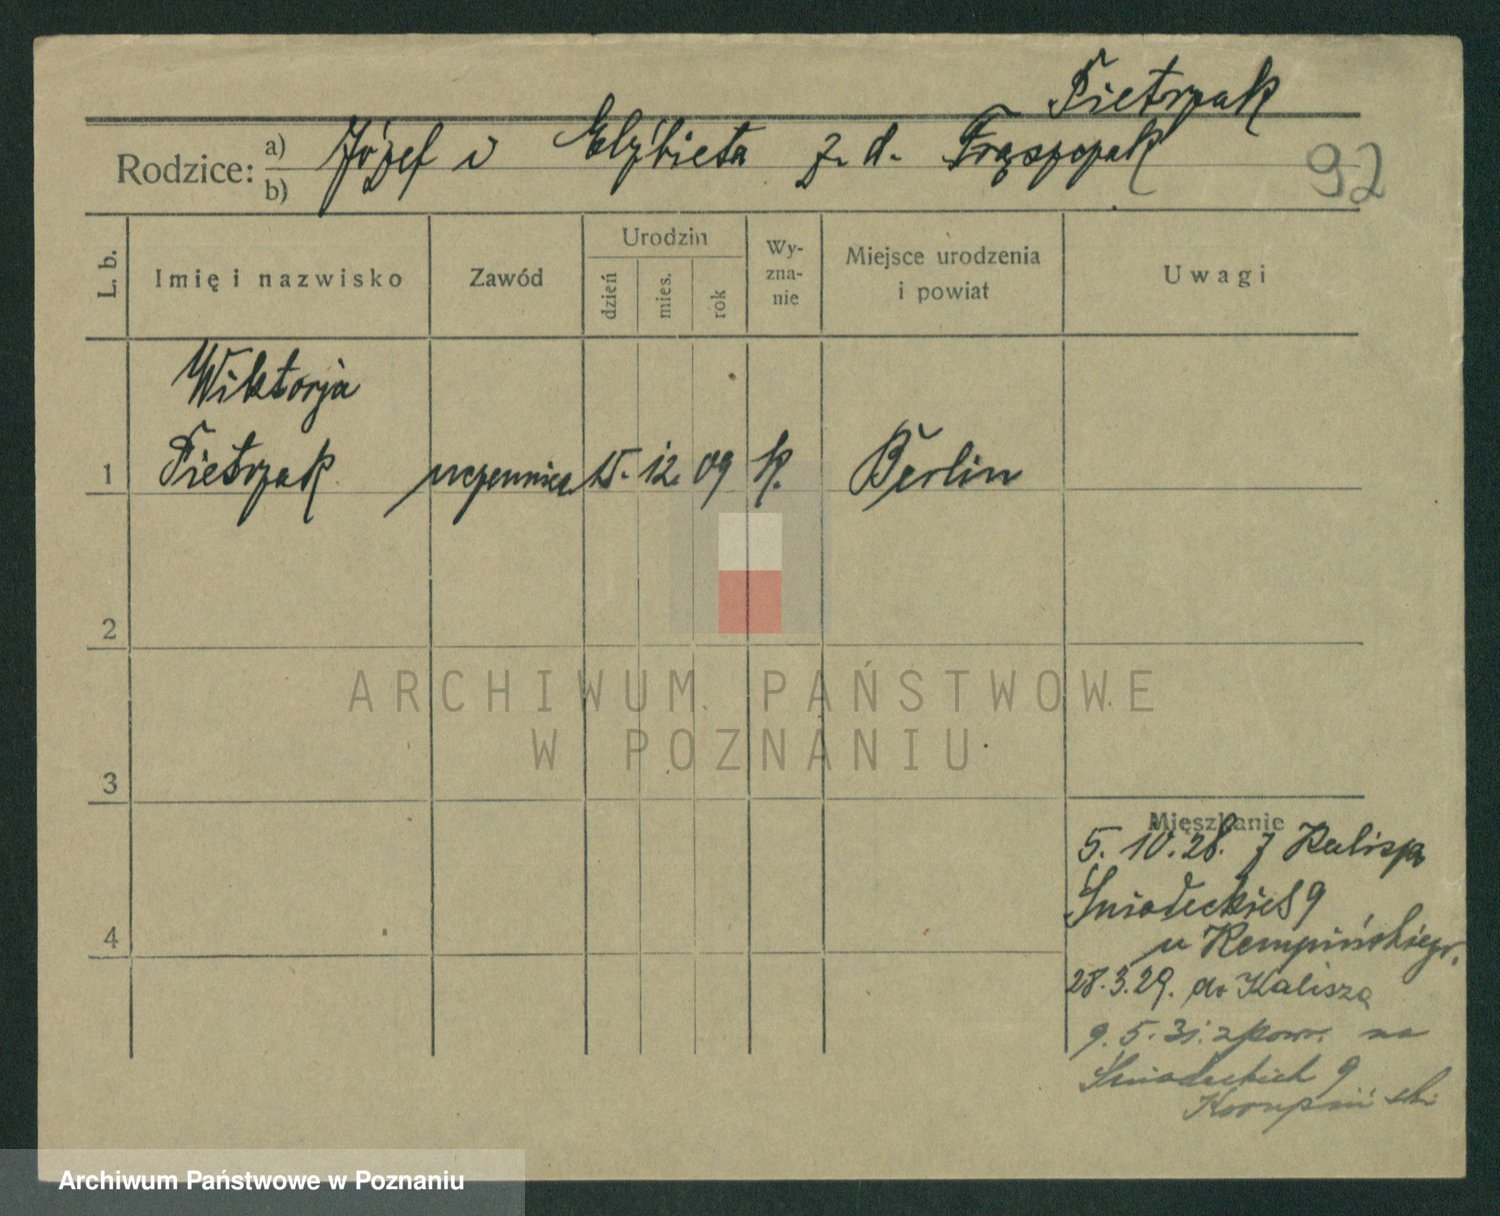 Pietrzak
Rodzice: a) Józef i Elżbieta z. d. Frąszczak
b)
92
L. b. Imię i nazwisko Zawód Urodzin dzień mies. rok Wy-zna-nie Miejsce urodzenia i powiat Uwagi
Wiktorja
1 Pietrzak uczennica 15. 12. 09 k. Berlin
2
ARCHIWUM PAŃSTWOWE
W POZNANIU
3
Mieszkanie
5. 10. 28. z Kalisza
Śniadeckich 9
4
u Kempińskiego.
28. 3. 29. do Kalisza
9. 5. 31. zpow. na
Śniadeckich 9
Archiwum Państwowe w Poznaniu